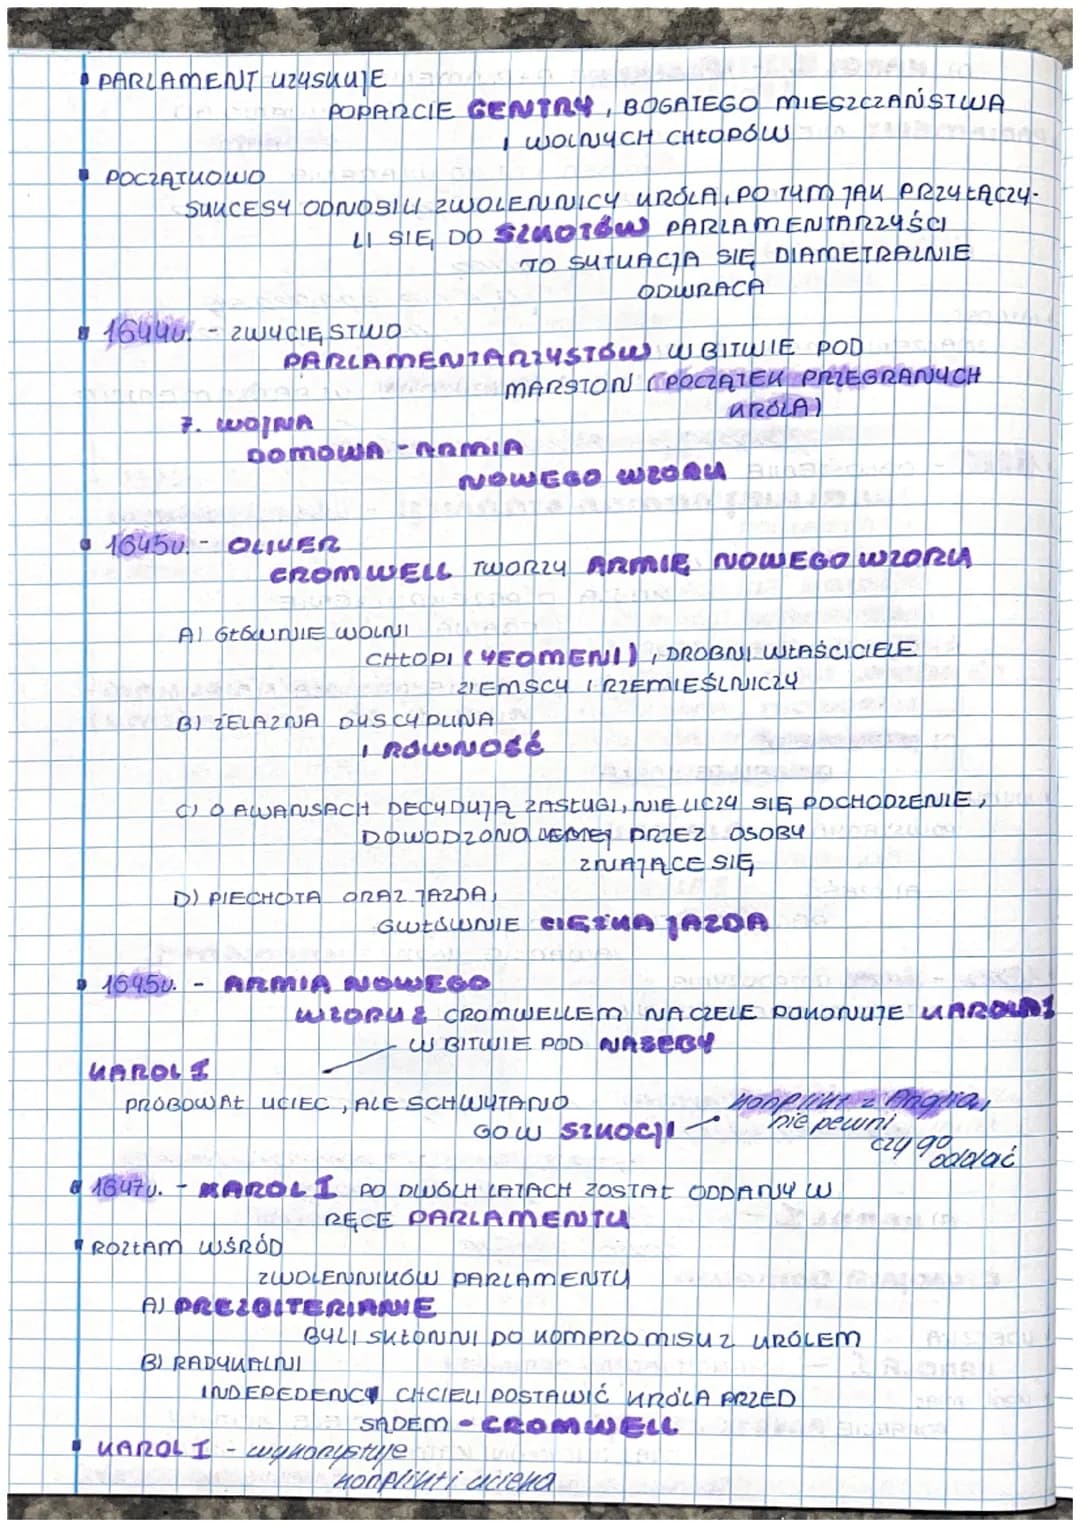 PARLAMENT UZYSKUJE
POPARCIE GENTRY, BOGATEGO MIESZCZAŃSTWA
I WOLNYCH CHŁOPÓW
POCZĄTKOWO
SUKCESY ODNOSILI ZWOLENNICY KRÓLA, PO TYM JAK PRZYŁĄCZY-
LI SIĘ DO SZKOTÓW PARLAMENTARZYŚCI
TO SYTUACJA SIĘ DIAMETRALNIE
ODWRACA
1644r. - ZWYCIĘSTWO
PARLAMENTARZYSTÓW W BITWIE POD
MARSTON (POCZĄTEK PRZEGRANYCH
KRÓLA)
7. WOJNA
DOMOWA - ARMIA
NOWEGO WZORU
1645r. - OLIVER
CROMWELL TWORZY ARMIĘ NOWEGO WZORU
A) GŁÓWNIE WOLNI
CHŁOPI (YEOMENI), DROBNI WŁAŚCICIELE
ZIEMSCY I RZEMIEŚLNICZY
B) ŻELAZNA DYSCYPLINA
I RÓWNOŚĆ
C) O AWANSACH DECYDUJĄ ZASŁUGI, NIE LICZY SIĘ POCHODZENIE,
DOWODZONO PRZEZ OSOBY
ZNAJĄCE SIĘ
D) PIECHOTA ORAZ JAZDA,
GWŁÓWNIE CIĘŻKA JAZDA
1645r. - ARMIA NOWEGO
WZORU Z CROMWELLEM NA CZELE POKONUJE KAROLA I
W BITWIE POD NASEBY
KAROL I
PRÓBOWAŁ UCIEC, ALE SCHWYTANO
GO W SZKOCJI
konflikt z Anglią,
nie pewni
czy go
oddać
1647r. - KAROL I PO DWÓCH LATACH ZOSTAŁ ODDANY W
RĘCE PARLAMENTU
ROZŁAM WŚRÓD
ZWOLENNIKÓW PARLAMENTU
A) PREZBITERIANIE
BYLI SKŁONNI DO KOMPROMISU Z KRÓLEM
B) RADYKALNI
INDEPEDENCY CHCIELI POSTAWIĆ KRÓLA PRZED
SĄDEM - CROMWELL
KAROL I - wykorzystuje
konflikt i ucieka